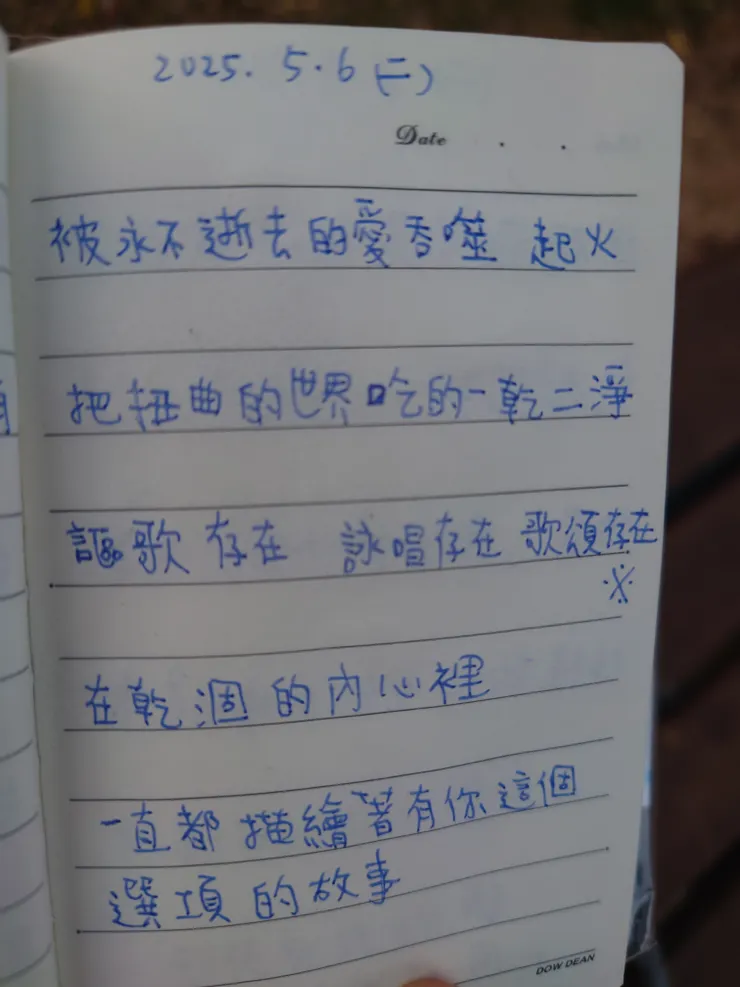 2025. 5. 6 (二)
Date . .
被永不逝去的愛吞噬 起火
把扭曲的世界吃的一乾二淨
謳歌存在 詠唱存在 歌頌存在
※
在乾涸的內心裡
一直都描繪著有你這個
選項的故事
DOW DEAN